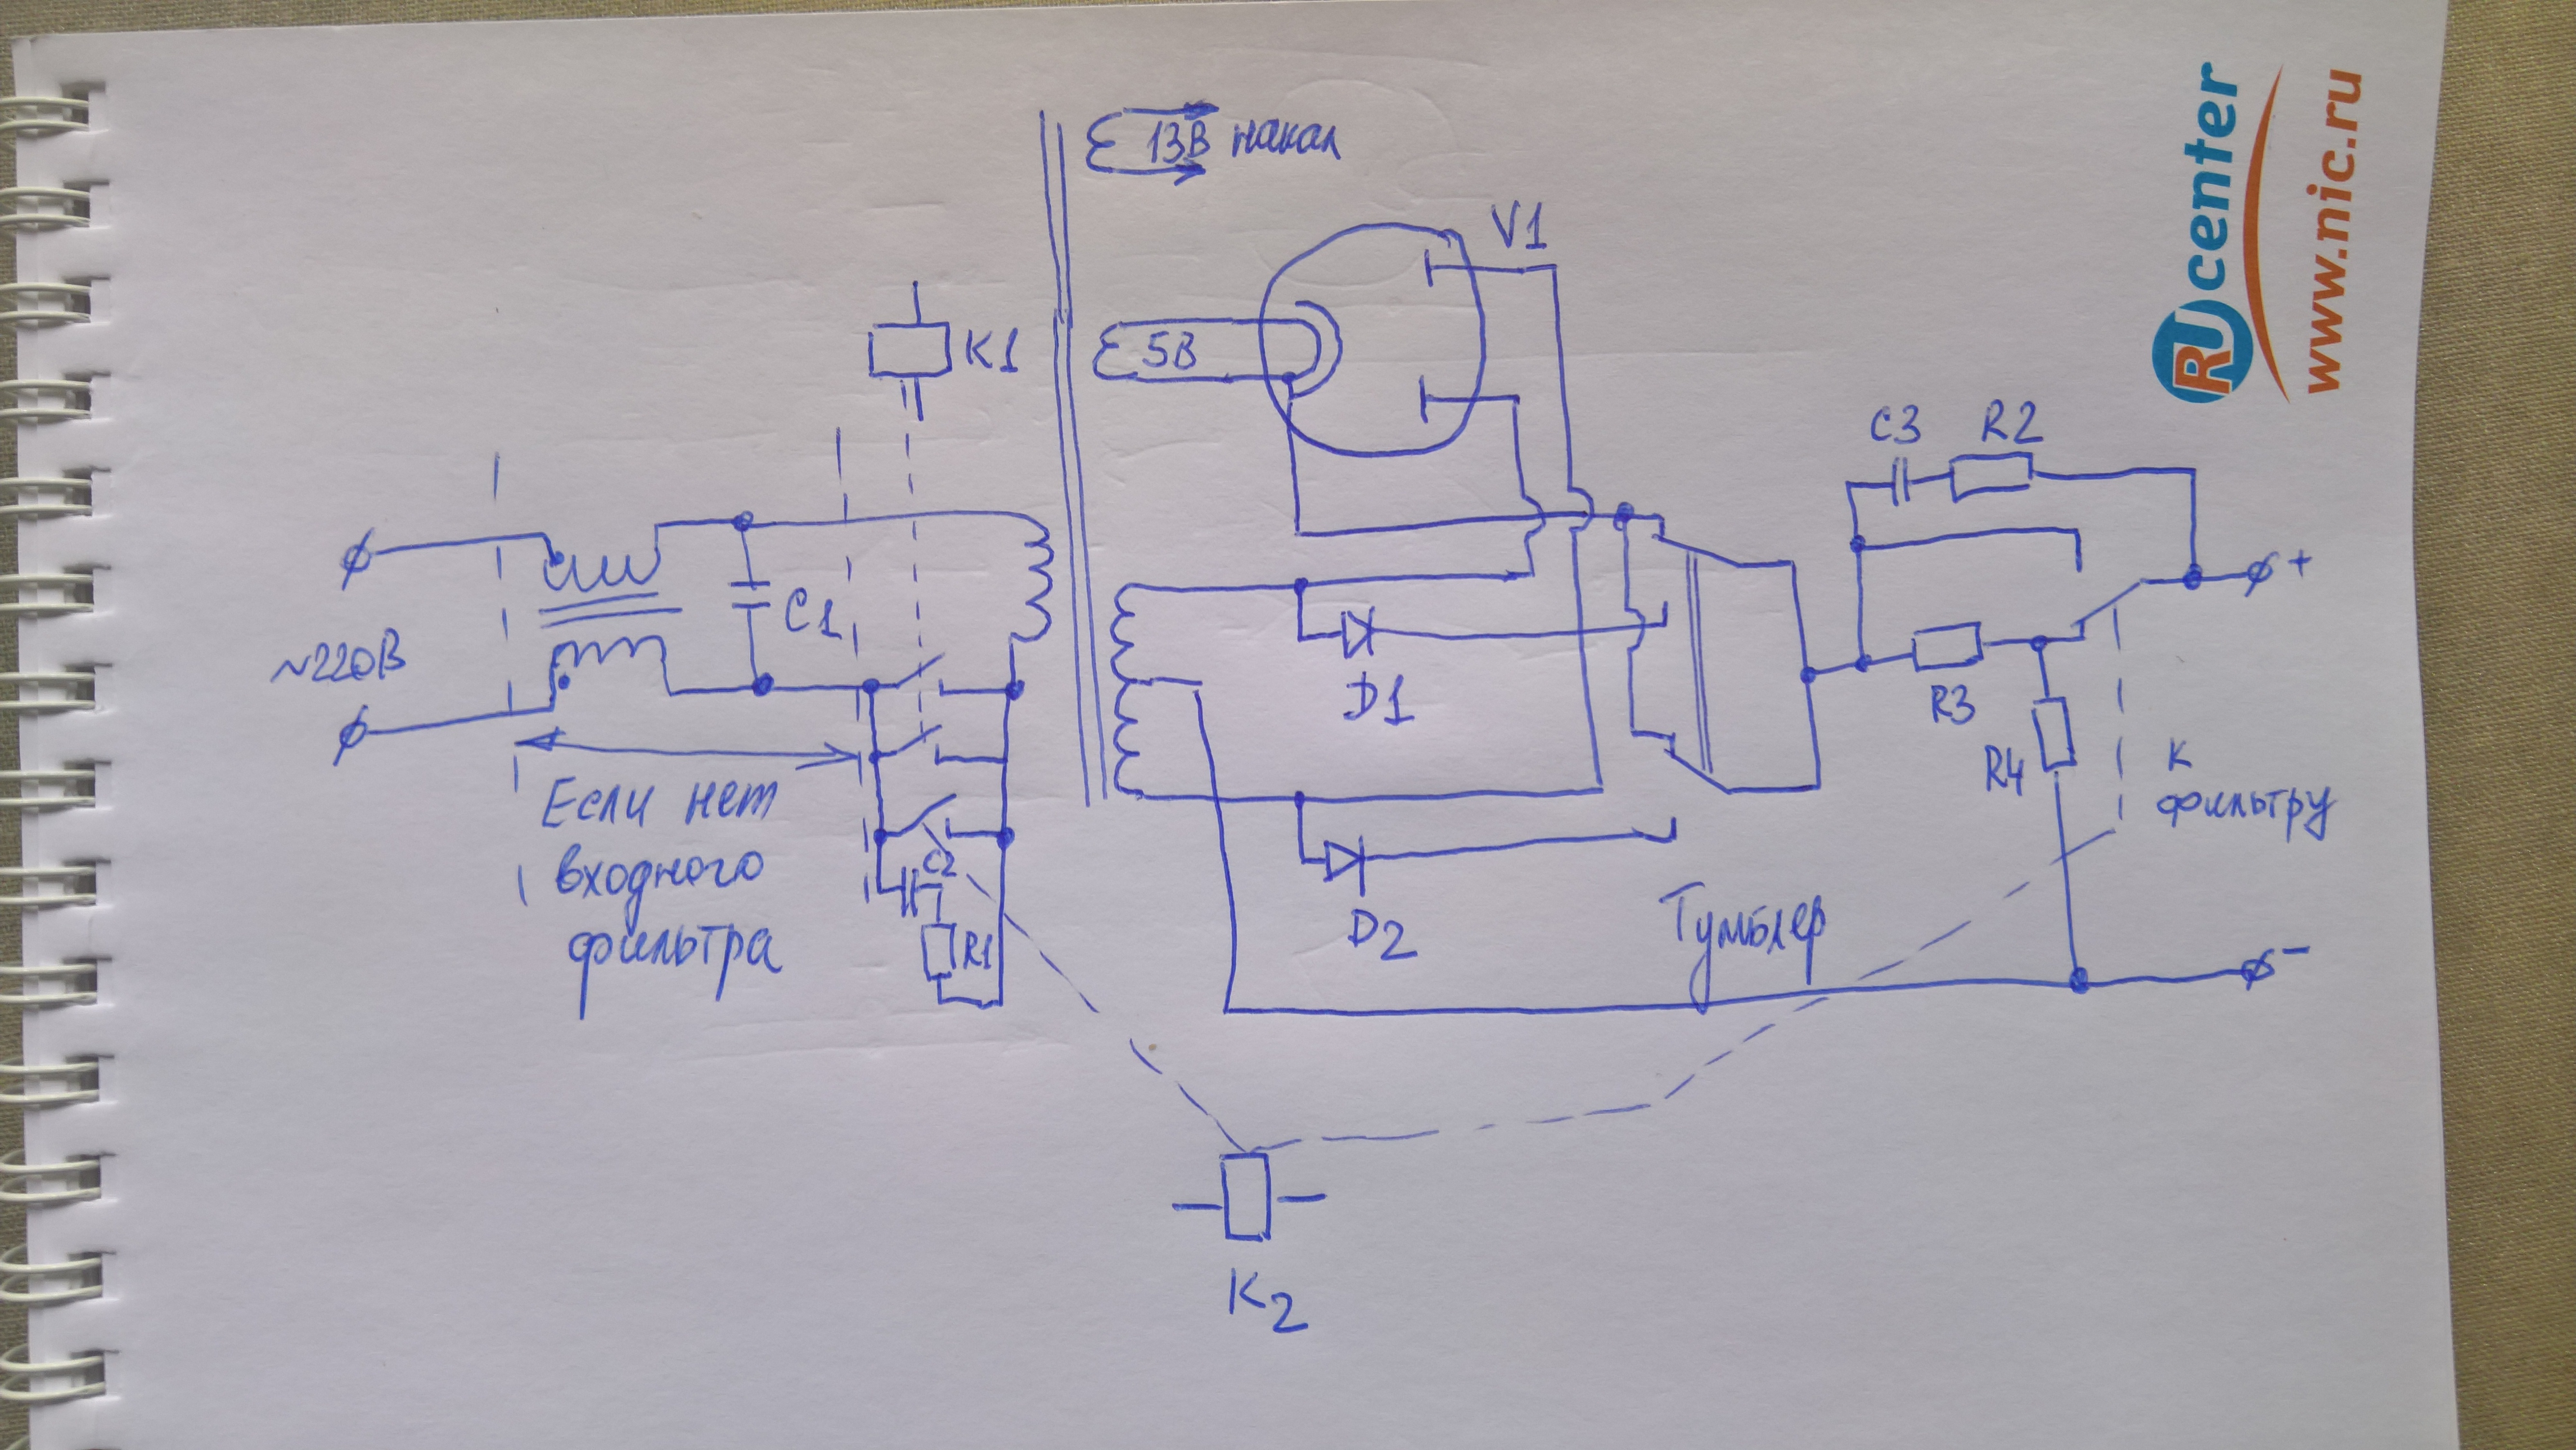 13В накал
V1
K1
5В
RU center
www.nic.ru
C3
R2
+
C1
~220В
D1
R3
R4
К
фильтру
Если нет
входного
фильтра
C2
R1
D2
Тумблер
-
K2